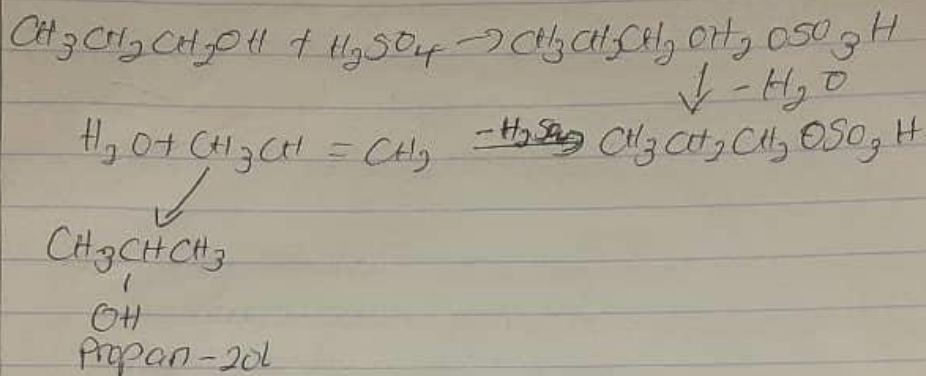 CH3CH2CH2OH + H2SO4 → CH3CH2CH2 OH2 OSO3H
↓ - H2O
H2O + CH3CH = CH2 -H2SO4→ CH3CH2CH2OSO3H
CH3CHCH3
OH
Propan-2ol